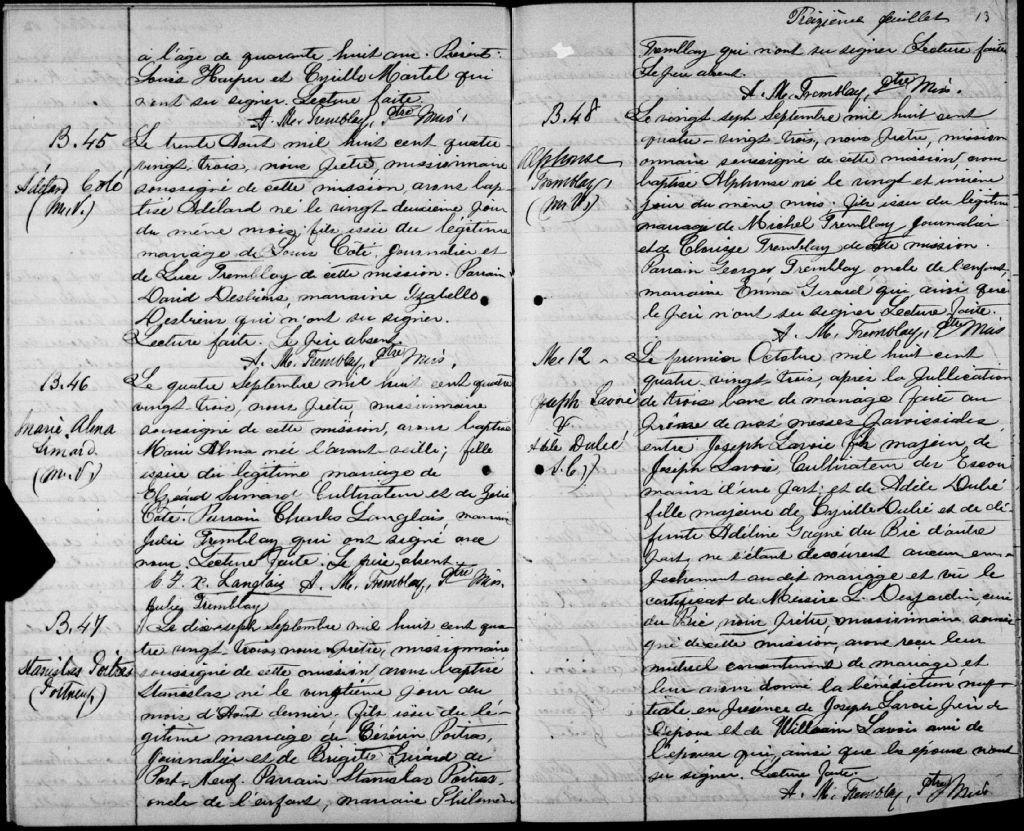 à l'âge de quarante huit ans. Présents:
Louis Harper et Cyrille Martel qui
n'ont su signer. Lecture faite
A. M. Tremblay, Ptre Miss.
B. 45
Adélard Coté
(M.V.)
Le trente Aout mil huit cent quatre
vingt-trois, nous prêtre, missionnaire
soussigné de cette mission, avons bap-
tisé Adélard né le vingt-deuxième jour
du même mois, fils issu du légitime
mariage de Louis Coté, journalier et
de Luce Tremblay de cette mission. Parrain
David Desbiens, marraine Izabelle
Desbiens qui n'ont su signer.
Lecture faite. Le père absent.
A. M. Tremblay, Ptre Miss.
B. 46
Marie Alma
Simard.
(M.V.)
Le quatre Septembre mil huit cent quatre
vingt-trois, nous prêtre, missionnaire
soussigné de cette mission, avons baptisé
Marie Alma née l'avant veille; fille
issue du légitime mariage de
Elzéard Simard Cultivateur et de Zélie
Coté. Parrain Charles Langlais, marraine
Julie Tremblay qui ont signé avec
nous. Lecture faite. Le père absent.
Langlais A. M. Tremblay, Ptre Miss.
Julie Tremblay
B. 47
Stanislas Poitras
(Portneuf)
Le dix-sept Septembre mil huit cent qua-
tre vingt trois, nous Prêtre, missionnaire
soussigné de cette mission avons baptisé
Stanislas né le vingtième jour du
mois d'Aout dernier, fils issu du lé-
gitime mariage de Poitras,
Journalier et de Brigitte Girard de
Port-Neuf. Parrain Stanislas Poitras
oncle de l'enfant, marraine Philomène
Treizième feuillet 13
Tremblay qui n'ont su signer Lecture faite
Le père absent.
A. M. Tremblay, Ptre Miss.
B. 48
Alphonse
Tremblay,
(M.V.)
Le vingt sept Septembre mil huit cent
quatre-vingt trois, nous prêtre, mission-
naire soussigné de cette mission avons
baptisé Alphonse né le vingt et unième
jour du même mois. fils issu du légitime
mariage de Michel Tremblay, journalier
et de Clarisse Tremblay de cette mission.
Parrain Georges Tremblay oncle de l'enfant,
marraine Emma Girard qui ainsi que
le père n'ont su signer Lecture faite.
A. M. Tremblay, Ptre Miss
M. 12
Joseph Lavoie
&
Adèle Dubé
Le premier Octobre mil huit cent
quatre vingt-trois, après la publication
de trois bans de mariage faite au
prône de nos messes paroissiales,
entre Joseph Lavoie fils majeur de
Joseph Lavoie, Cultivateur des Escou-
mains d'une part et de Adèle Dubé
fille majeure de Cyrille Dubé et de dé-
funte Adéline Gagné du Bic d'autre
part, ne s'étant découvert aucun em-
pêchement au dit mariage et vu le
certificat de Messire L. Desjardins, curé
du Bic, nous prêtre, missionnaire soussi-
gné de cette mission, avons reçu leur
mutuel consentement de mariage et
leur avons donné la bénédiction nup-
tiale en présence de Joseph Lavoie père de
l'époux et de William Lavoie ami de
l'épouse qui ainsi que les époux n'ont
su signer. Lecture faite.
A. M. Tremblay, Ptre Miss